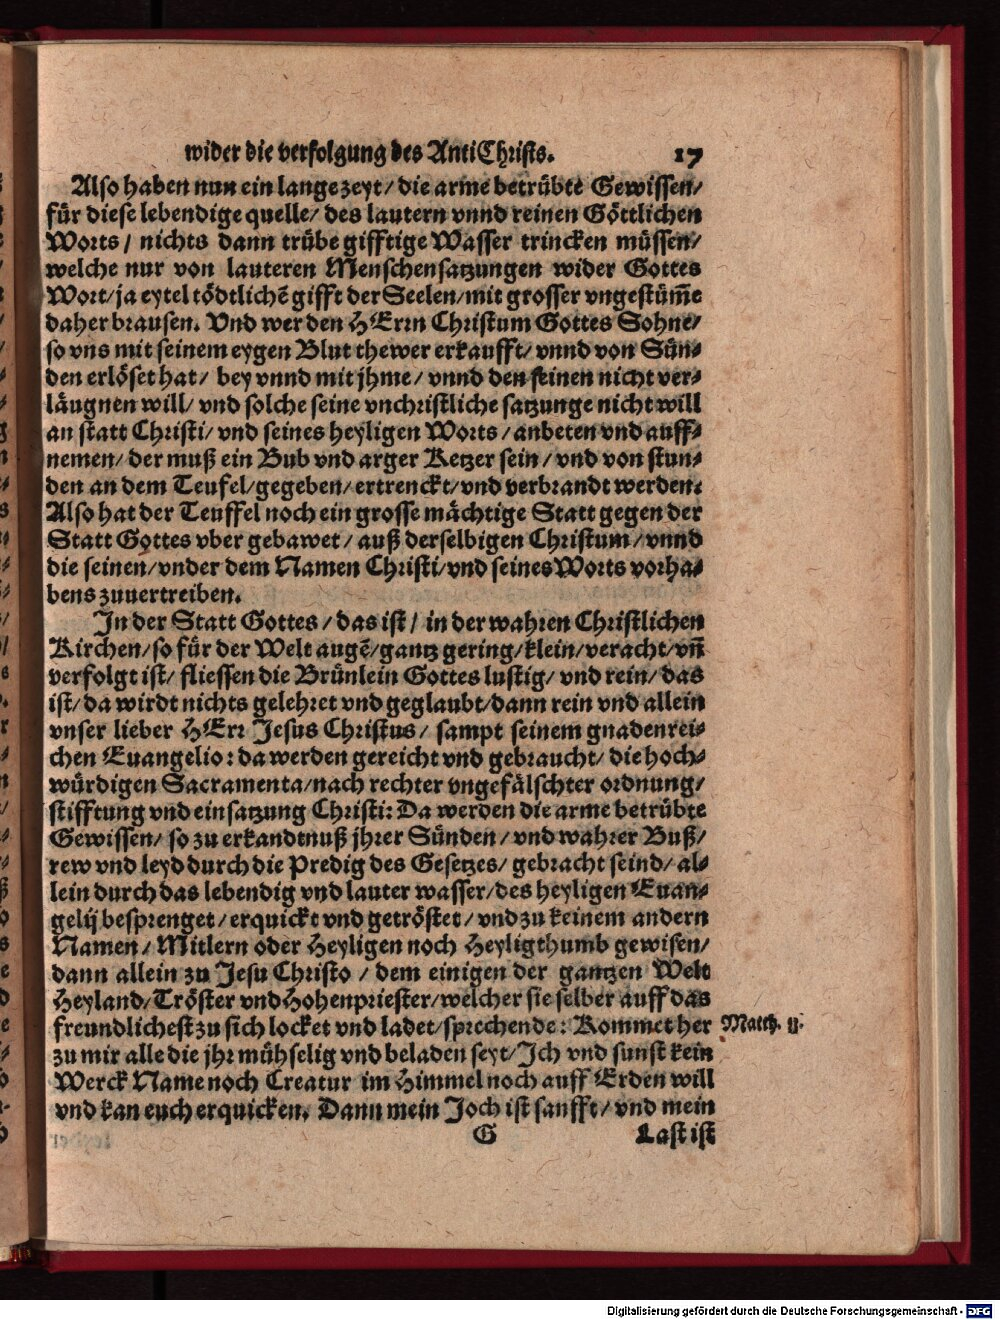 wider die verfolgung des AntiChrists. 17
Also haben nun ein lange zeyt / die arme betrübte Gewissen/
für diese lebendige quelle/ des lautern vnnd reinen Göttlichen
Worts / nichts dann trübe gifftige Wasser trincken müssen/
welche nur von lauteren Menschensatzungen wider Gottes
Wort/ ja eytel tödtlichē gifft der Seelen/ mit grosser vngestüm̄e
daher brausen. Vnd wer den HErrn Christum Gottes Sohne/
so vns mit seinem eygen Blut thewer erkaufft/ vnnd von Sün⸗
den erlöset hat/ bey vnnd mit jhme / vnnd den seinen nicht ver⸗
läugnen will/ vnd solche seine vnchristliche satzunge nicht will
an statt Christi/ vnd seines heyligen Worts / anbeten vnd auff⸗
nemen/ der muß ein Bub vnd arger Ketzer sein / vnd von stun⸗
den an dem Teufel/ gegeben/ ertrenckt/ vnd verbrandt werden.
Also hat der Teuffel noch ein grosse mächtige Statt gegen der
Statt Gottes vber gebawet / auß derselbigen Christum / vnnd
die seinen/ vnder dem Namen Christi/ vnd seines Worts vorha⸗
bens zuuertreiben.
In der Statt Gottes / das ist / in der wahren Christlichen
Kirchen/ so für der Welt augē/ gantz gering/ klein/ veracht/ vn̄
verfolgt ist/ fliessen die Brünlein Gottes lustig/ vnd rein/ das
ist/ da wirdt nichts gelehret vnd geglaubt/ dann rein vnd allein
vnser lieber HErr Jesus Christus/ sampt seinem gnadenrei⸗
chen Euangelio: da werden gereicht vnd gebraucht/ die hoch⸗
würdigen Sacramenta/ nach rechter vngefälschter ordnung/
stifftung vnd einsatzung Christi: Da werden die arme betrübte
Gewissen/ so zu erkandtnuß jhrer Sünden / vnd wahrer Buß/
rew vnd leyd durch die Predig des Gesetzes/ gebracht seind/ al⸗
lein durch das lebendig vnd lauter wasser/ des heyligen Euan⸗
gelij besprenget/ erquickt vnd getröstet/ vnd zu keinem andern
Namen/ Mitlern oder Heyligen noch Heyligthumb gewisen/
dann allein zu Jesu Christo / dem einigen der gantzen Welt
Heyland/ Tröster vnd Hohenpriester/ welcher sie selber auff das
freundlichest zu sich locket vnd ladet/ sprechende: Kommet her Matth. 11.
zu mir alle die jhr mühselig vnd beladen seyt/ Ich vnd sunst kein
Werck Name noch Creatur im Himmel noch auff Erden will
vnd kan euch erquicken. Dann mein Joch ist sanfft/ vnd mein
G Last ist
Digitalisierung gefördert durch die Deutsche Forschungsgemeinschaft - DFG